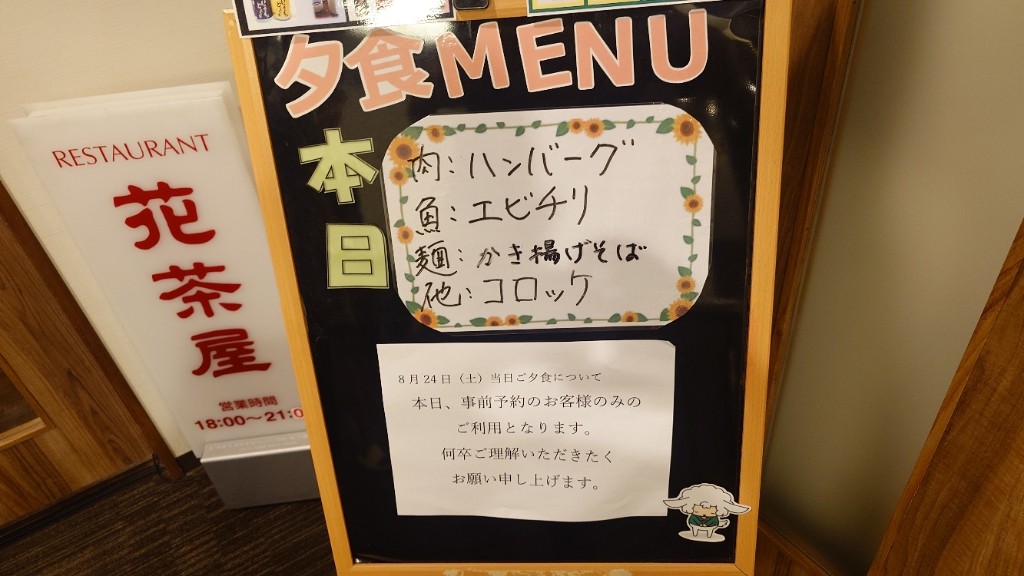 夕食MENU
本日
肉:ハンバーグ
魚:エビチリ
麺:かき揚げそば
他:コロッケ
8月24日（土）当日ご夕食について
本日、事前予約のお客様のみの
ご利用となります。
何卒ご理解いただきたく
お願い申し上げます。
RESTAURANT
花茶屋
営業時間
18:00〜21:0